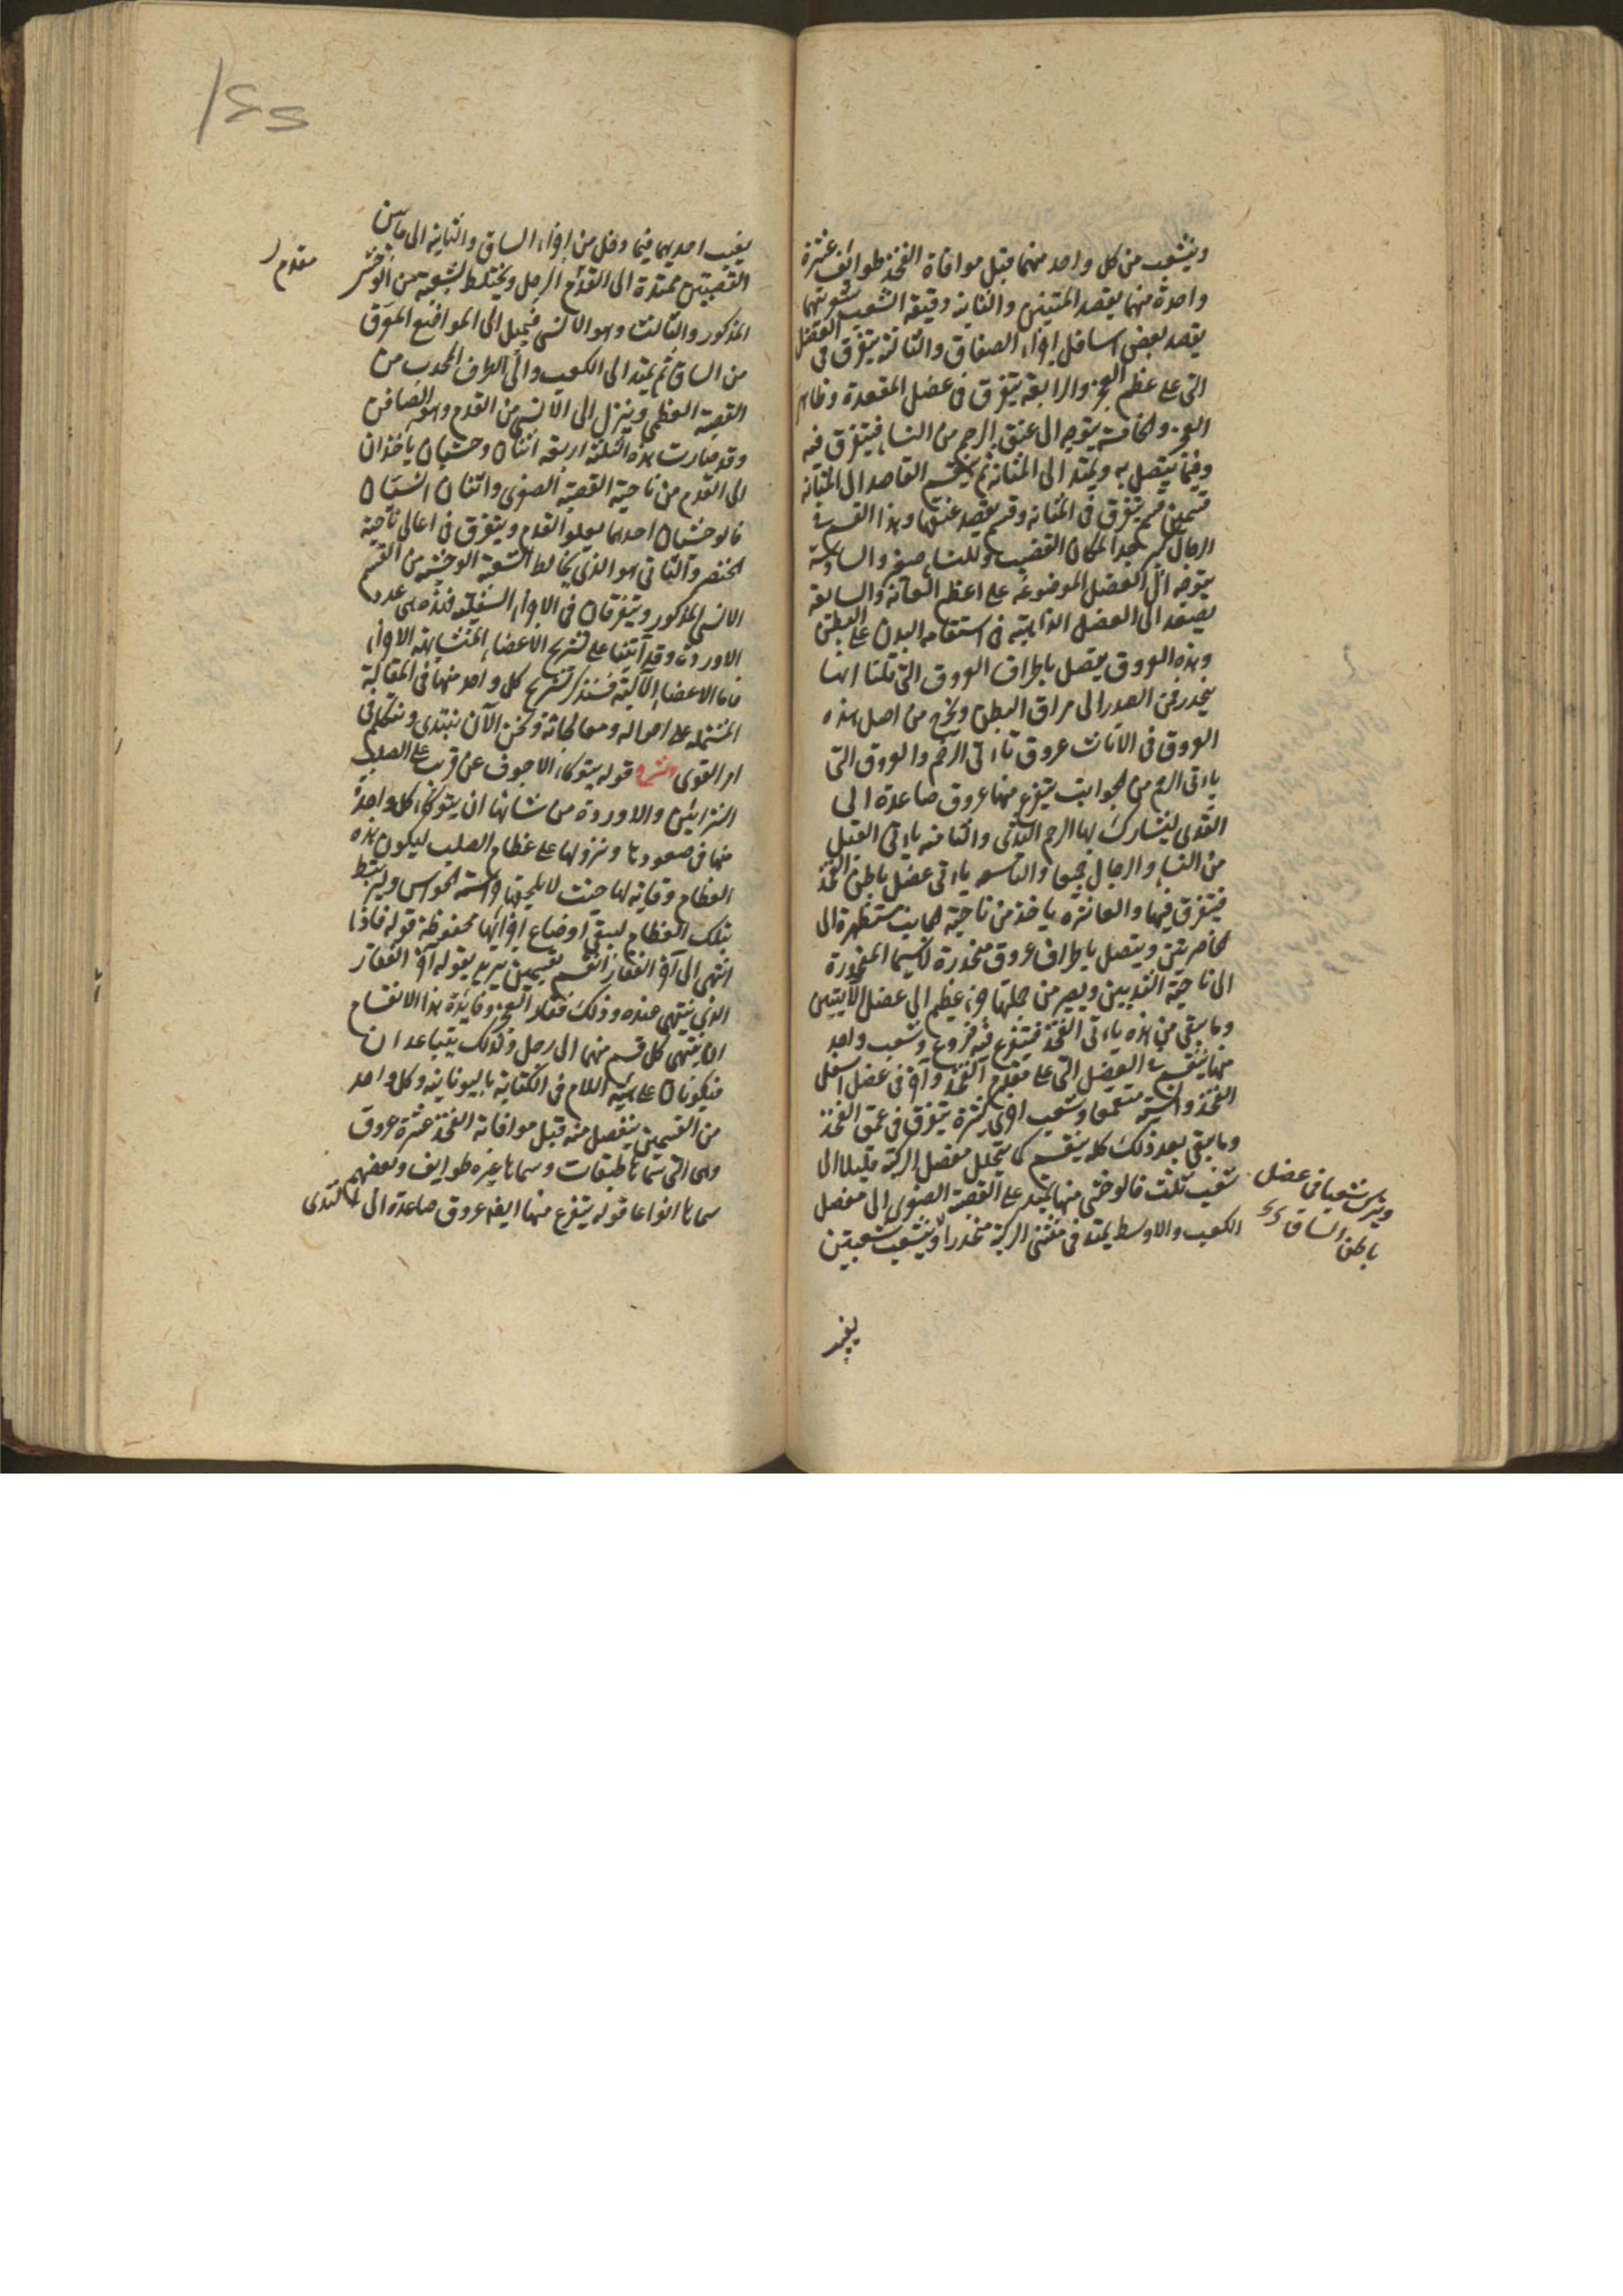 ويتشعب من كل واحد منهما قبل موافاة الفخذ طوائف عشرة
واحدة منها يقصد المتنين والثانية دقيقة الشعب شعريتها
يقصد بعض اسافل اجزاء الصفاق والثالثة يتفرق في العضل
التي على عظم العجز والرابعة يتفرق في عضل المقعدة وظاهر
العجز والخامسة يتوجه الى عنق الرحم من النساء فيتفرق فيه
وفيما يتصل به ويمتد الى المثانة ثم ينقسم القاصد الى المثانة
قسمين قسم يتفرق في المثانة وقسم يقصد عنقها وهذا القسم في
الرجال كبير جدا لمكان القضيب وللنساء صغير والسادسة
يتوجه الى العضل الموضوعة على اعظم العانة والسابعة
يصعد الى العضل الذاهبة في استقامة البدن على البطن
وهذه العروق يتصل باطراف العروق التي قلنا انها
ينحدر في الصدر الى مراق البطن ويخرج من اصل هذه
العروق في الاناث عروق تاءتي الرحم والعروق التي
ياءتي الرحم من الجوانب يتفرع منها عروق صاعدة الى
الثدى ليشارك بها الرحم الثدى والثامنة ياءتي القبل
من النساء والرجال جميعا والتاسعة ياءتي عضل باطن الفخذ
فيتفرق فيها والعاشرة ياخذ من ناحية الحالب مستظهرة الى
الخاصرتين ويتصل باطراف عروق منحدرة لاسيما المنحدرة
الى ناحية الثديين ويصير من جملتها جزء عظيم الى عضل الانثيين
وما يبقى من هذه ياءتي الفخذ فيتفرع فيه فروع وشعب واحد
منها ينقسم في العضل التي على مقدم الفخذ وآخر في عضل اسفل
الفخذ وانسيه متعمقا وشعب اخرى كثيرة يتفرق في عمق الفخذ
وما يبقى بعد ذلك كله ينقسم كما يتحلل مفصل الركبة قليلا الى
شعب ثلث فالوحشى منها يمتد على القصبة الصغرى الى مفصل
الكعب والاوسط يمتد في منثنى الركبة منحدرا ويتشعب شعبتين
ويترك شعبا في عضل
باطن الساق
يغيب
يغيب احديهما فيما دخل من اجزاء الساق والثانية الى ما بين
القصبتين ممتدة الى القدام الرجل ويختلط بشعبة من الوحشى
مقدم
المذكور والثالث وهو الانسى فيميل الى المواضع المعرق
من الساق ثم يمتد الى الكعب والى الطرف المحدب من
القصبة العظمى وينزل الى الانسى من القدم وهو الصافن
وقد صارت هذه الثلثة اربعة اثنان وحشيان ياخذان
الى القدم من ناحية القصبة الصغرى واثنان انسيان
فالوحشيان احدهما يعلو القدم ويتفرق في اعالى ناحية
الخنصر والثانى هو الذى يخالط الشعبة الوحشية من القسم
الانسى المذكور ويتفرقان في الاجزاء السفلية فهذه هى عدد
الاوردة وقد آتينا على تشريح الاعضاء المتشابهة الاجزاء
فاما الاعضاء الآلية فسنذكر تشريح كل واحد منها في المقالة
المشتملة على احواله ومعالجاته ونحن الآن نبتدى ونتكلم في
امر القوى الشرح قوله يتوكاء الاجوف عن قريب على الصلب
الشرائين والاوردة من شانها ان يتوكاء كل واحدة
منها في صعودها ونزولها على عظام الصلب ليكون هذه
العظام وقاية لها حيث لا يلحقها حراسة الحواس وليرتبط
بتلك العظام ليبقى اوضاع اجزائها محفوظة قوله فاذا
انتهى الى آخر الفقار انقسم بقسمين يريد بقوله آخر الفقار
الذى ينتهى عنده وذلك فقار العجز وفائدة هذا الانقسام
ان ينتهى كل قسم منهما الى رجل وكذلك يتباعدان
فيكونان على هيئة اللام في الكتابة باليونانية وكل واحد
من القسمين ينفصل منه قبل موافاته الفخذ عشرة عروق
وهى التى سماها طبقات وسماها غيره طوايف وبعضهم
سماها انواعا قوله يتفرع منها ايضا عروق صاعدة الى الثدى